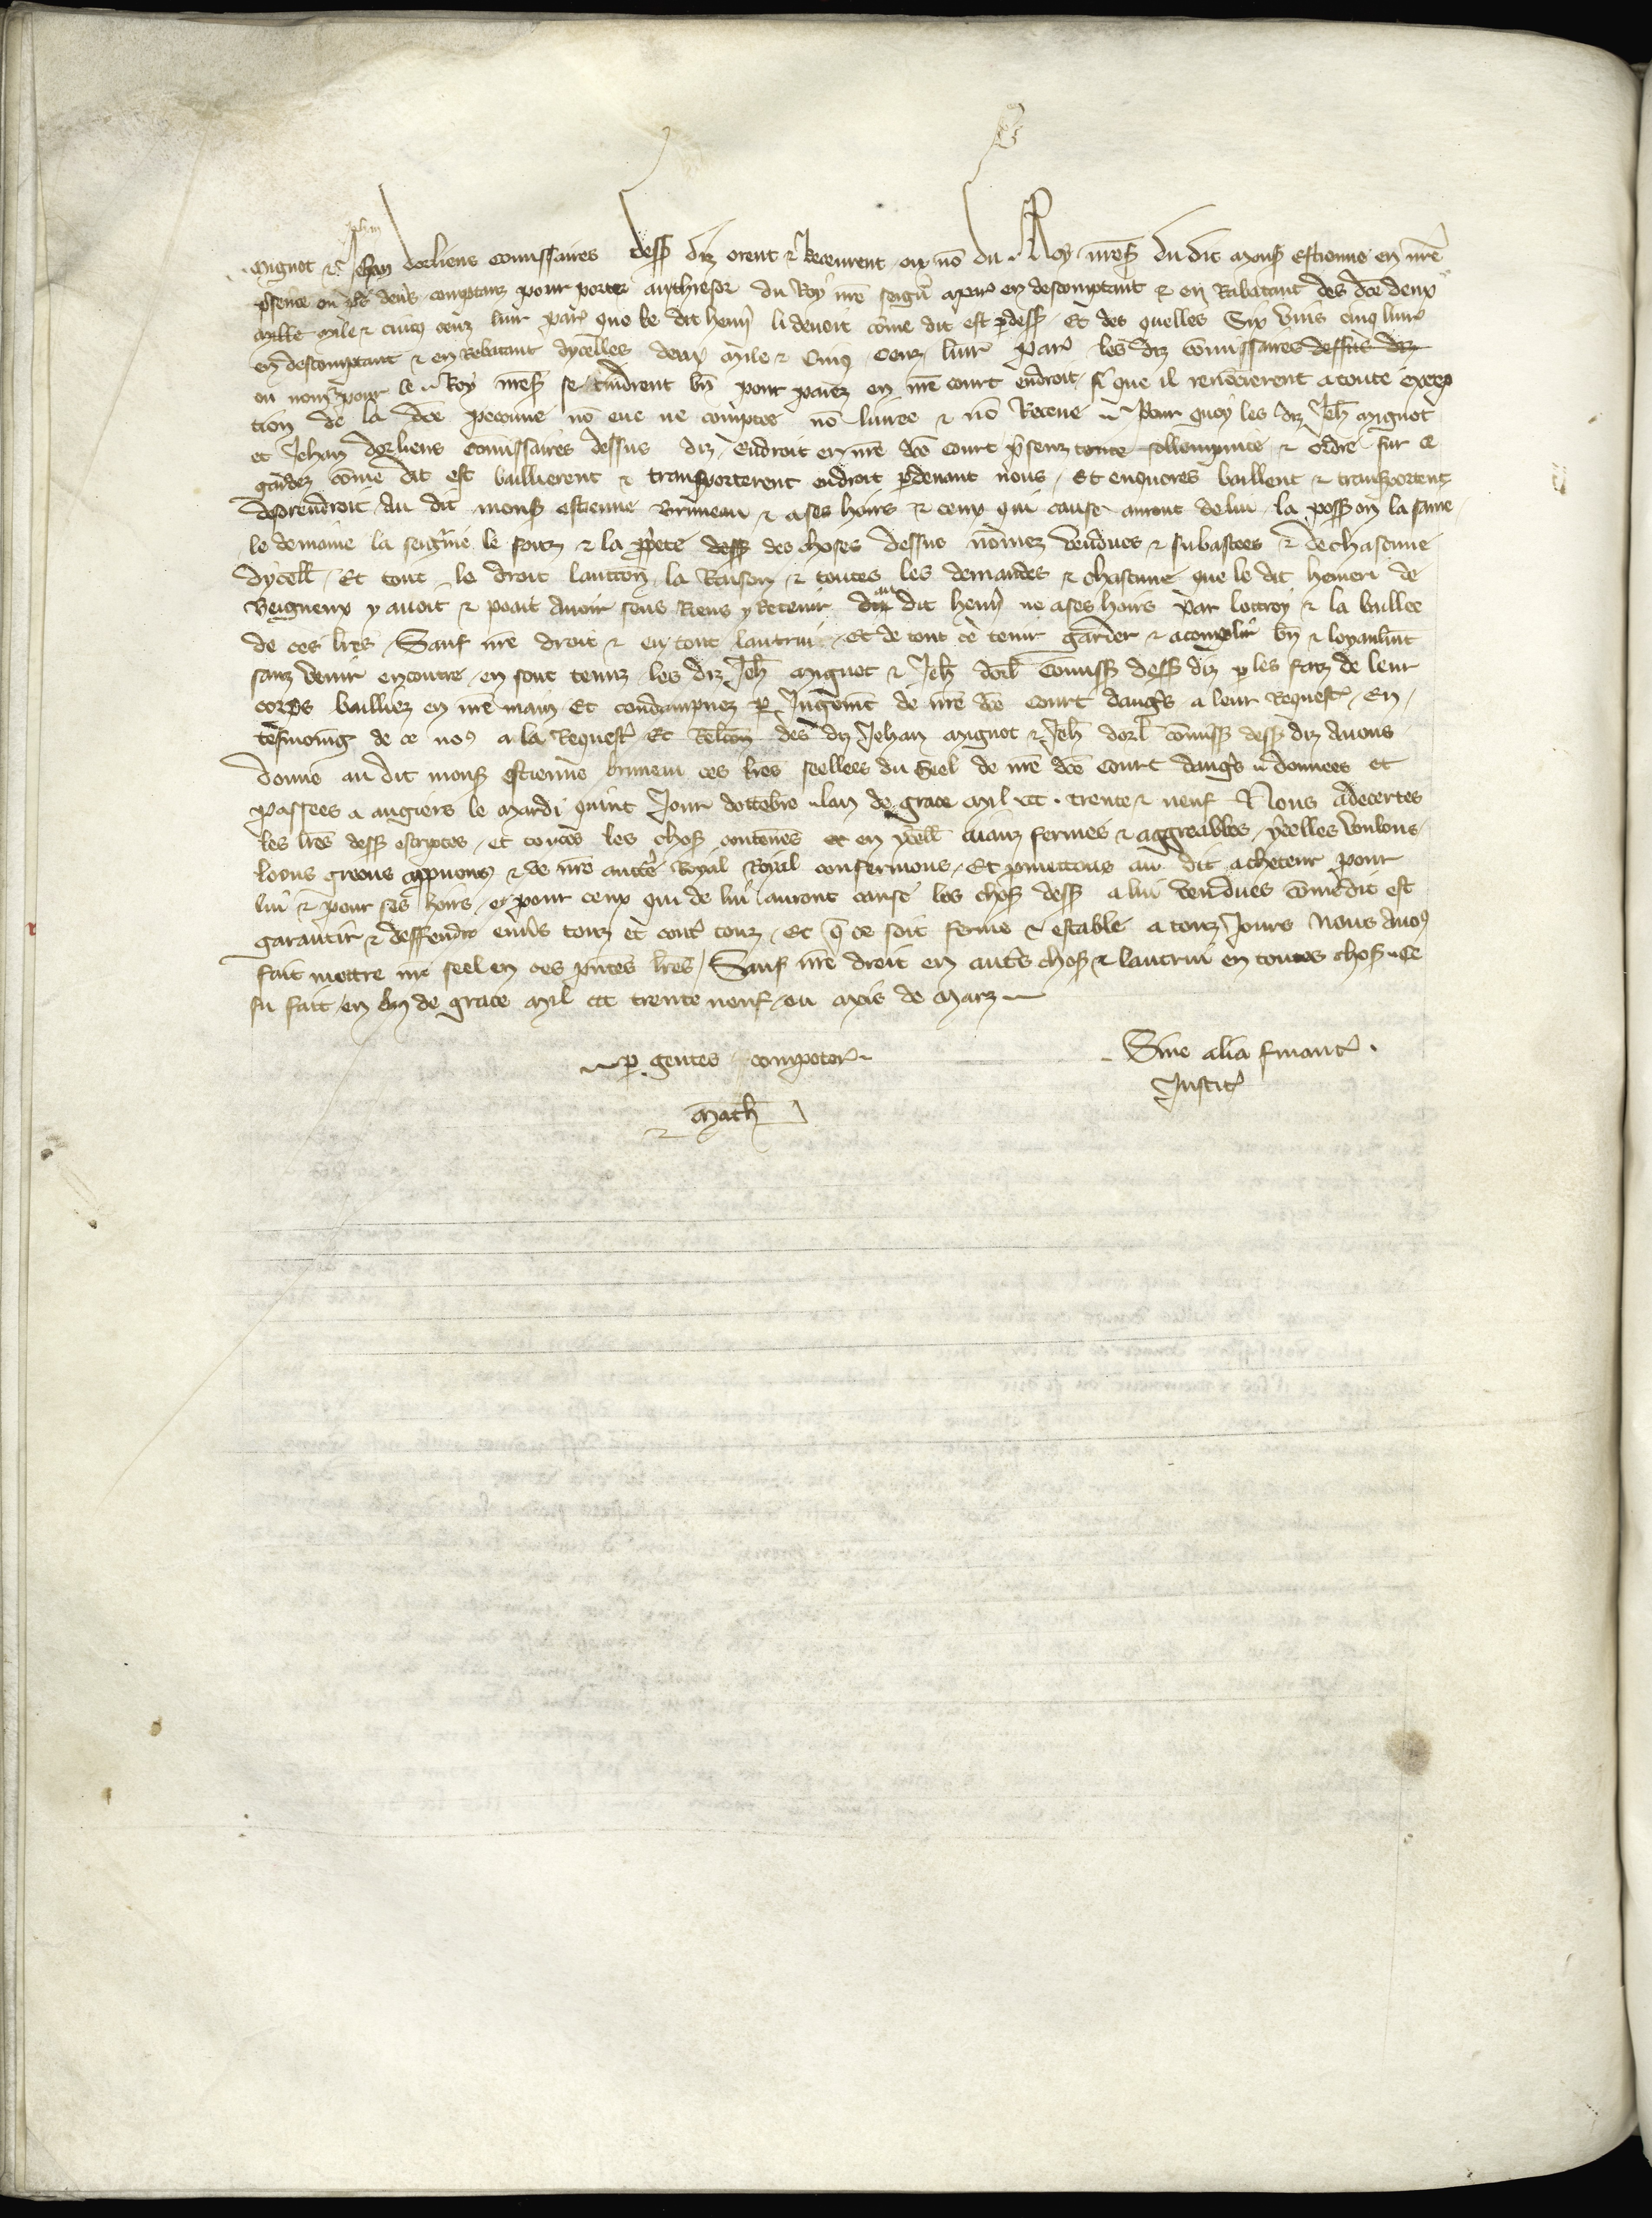 Mignot et Jehan dorliens commissaires dess diz orent et Receurent ou no du Roy nres du dit mons estienne en nre
psence en ds deniers comptanz pour porter au thresor du Roy nre seigñ a paris en descomptant et en Rabatant des dce deux
mille mile et cinq cenz livr par que le dit hemi li devoit come dit est p dess Et des quelles Six vins cinq livr
en descomptant et en Rebatant dycelles deux mile et Cinq Cenz livr par les diz comissaires dessus diz
ou nom pour le Roy nres se tindrent bn pour paiez en nre court endroit si que il renoncierent a toute excep
tion de la dce peccune no eue ne comptee no livree et no Receue Pour quoy les diz Jeh mignot
et Jehan dorliens comissaires dessus diz Endroit en nre dce Court psenz toute sollempnite et ordre sur ce
gardez come dit est baillierent et transporterent endroit p devant nous Et enquores baillent et transportent
desorendroit Au dit mons estienne Bruneau et a ses hoirs et ceux qui cause auront de lui la poss on la saisine
le demaine la seigrie le fonz et la ppete dess des choses dessus nomez vendues et subastees et de chascune
dycell Et tout le droit lauccon la Raison et toutes les demandes et chascune que le dit hemeri de
Beigneux y avoit et poait Avoir sens Riens y Retenir au dit hemi ne a ses hoirs par lottroy et la baillee
de ces lres Sauf nre droit et en tout lautrui Et de tout ce tenir garder et acomplir bn et loyaulmt
sanz venir encontre en sont tenuz les diz Jeh mignot et Jeh dorl Comiss dess diz p les faiz de leur
corps bailliez en nre main Et condampnez p Jugemt de nre dce Court dangrs a leur Request En
tesmoing de ce nos a la Request Et Relcon des diz Jehan mignot et Jeh dorl comiss dess diz Avons
donne au dit mons estienne bruneau ces lres seellees du Seel de nre dce Court dangrs donnees et
passees a angiers le mardi quint Jour dottembre lan de grace mil ccc trente et neuf Nous adecertes
les lres dess escriptes et toutes les chos contenues en ycell aianz fermes et aggreables ycelles voulons
loons greons appuons et de nre auctte Royal Royal confermons Et pmettons au dit acheteur pour
lui et pour ses hoirs et pour ceux qui de lui auront cause les chos dess a lui vendues come dit est
garantir et deffendre envs touz et cont touz Et q ce soit ferme et estable a touz Jours Nous Avos
fait mettre nre seel en ces pntes lres Sauf nre droit en autrs chos et lautrui en toutes chos Ce
fu fait en lan de grace mil ccc trente neuf ou mois de marz
p gentes compotor
Sine alia financ
Justic
Math